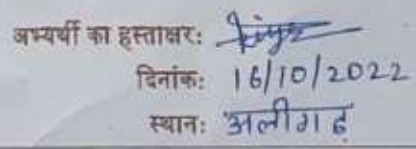 अभ्यर्थी का हस्ताक्षर:
दिनांक: 16/10/2022
स्थान: अलीगढ़